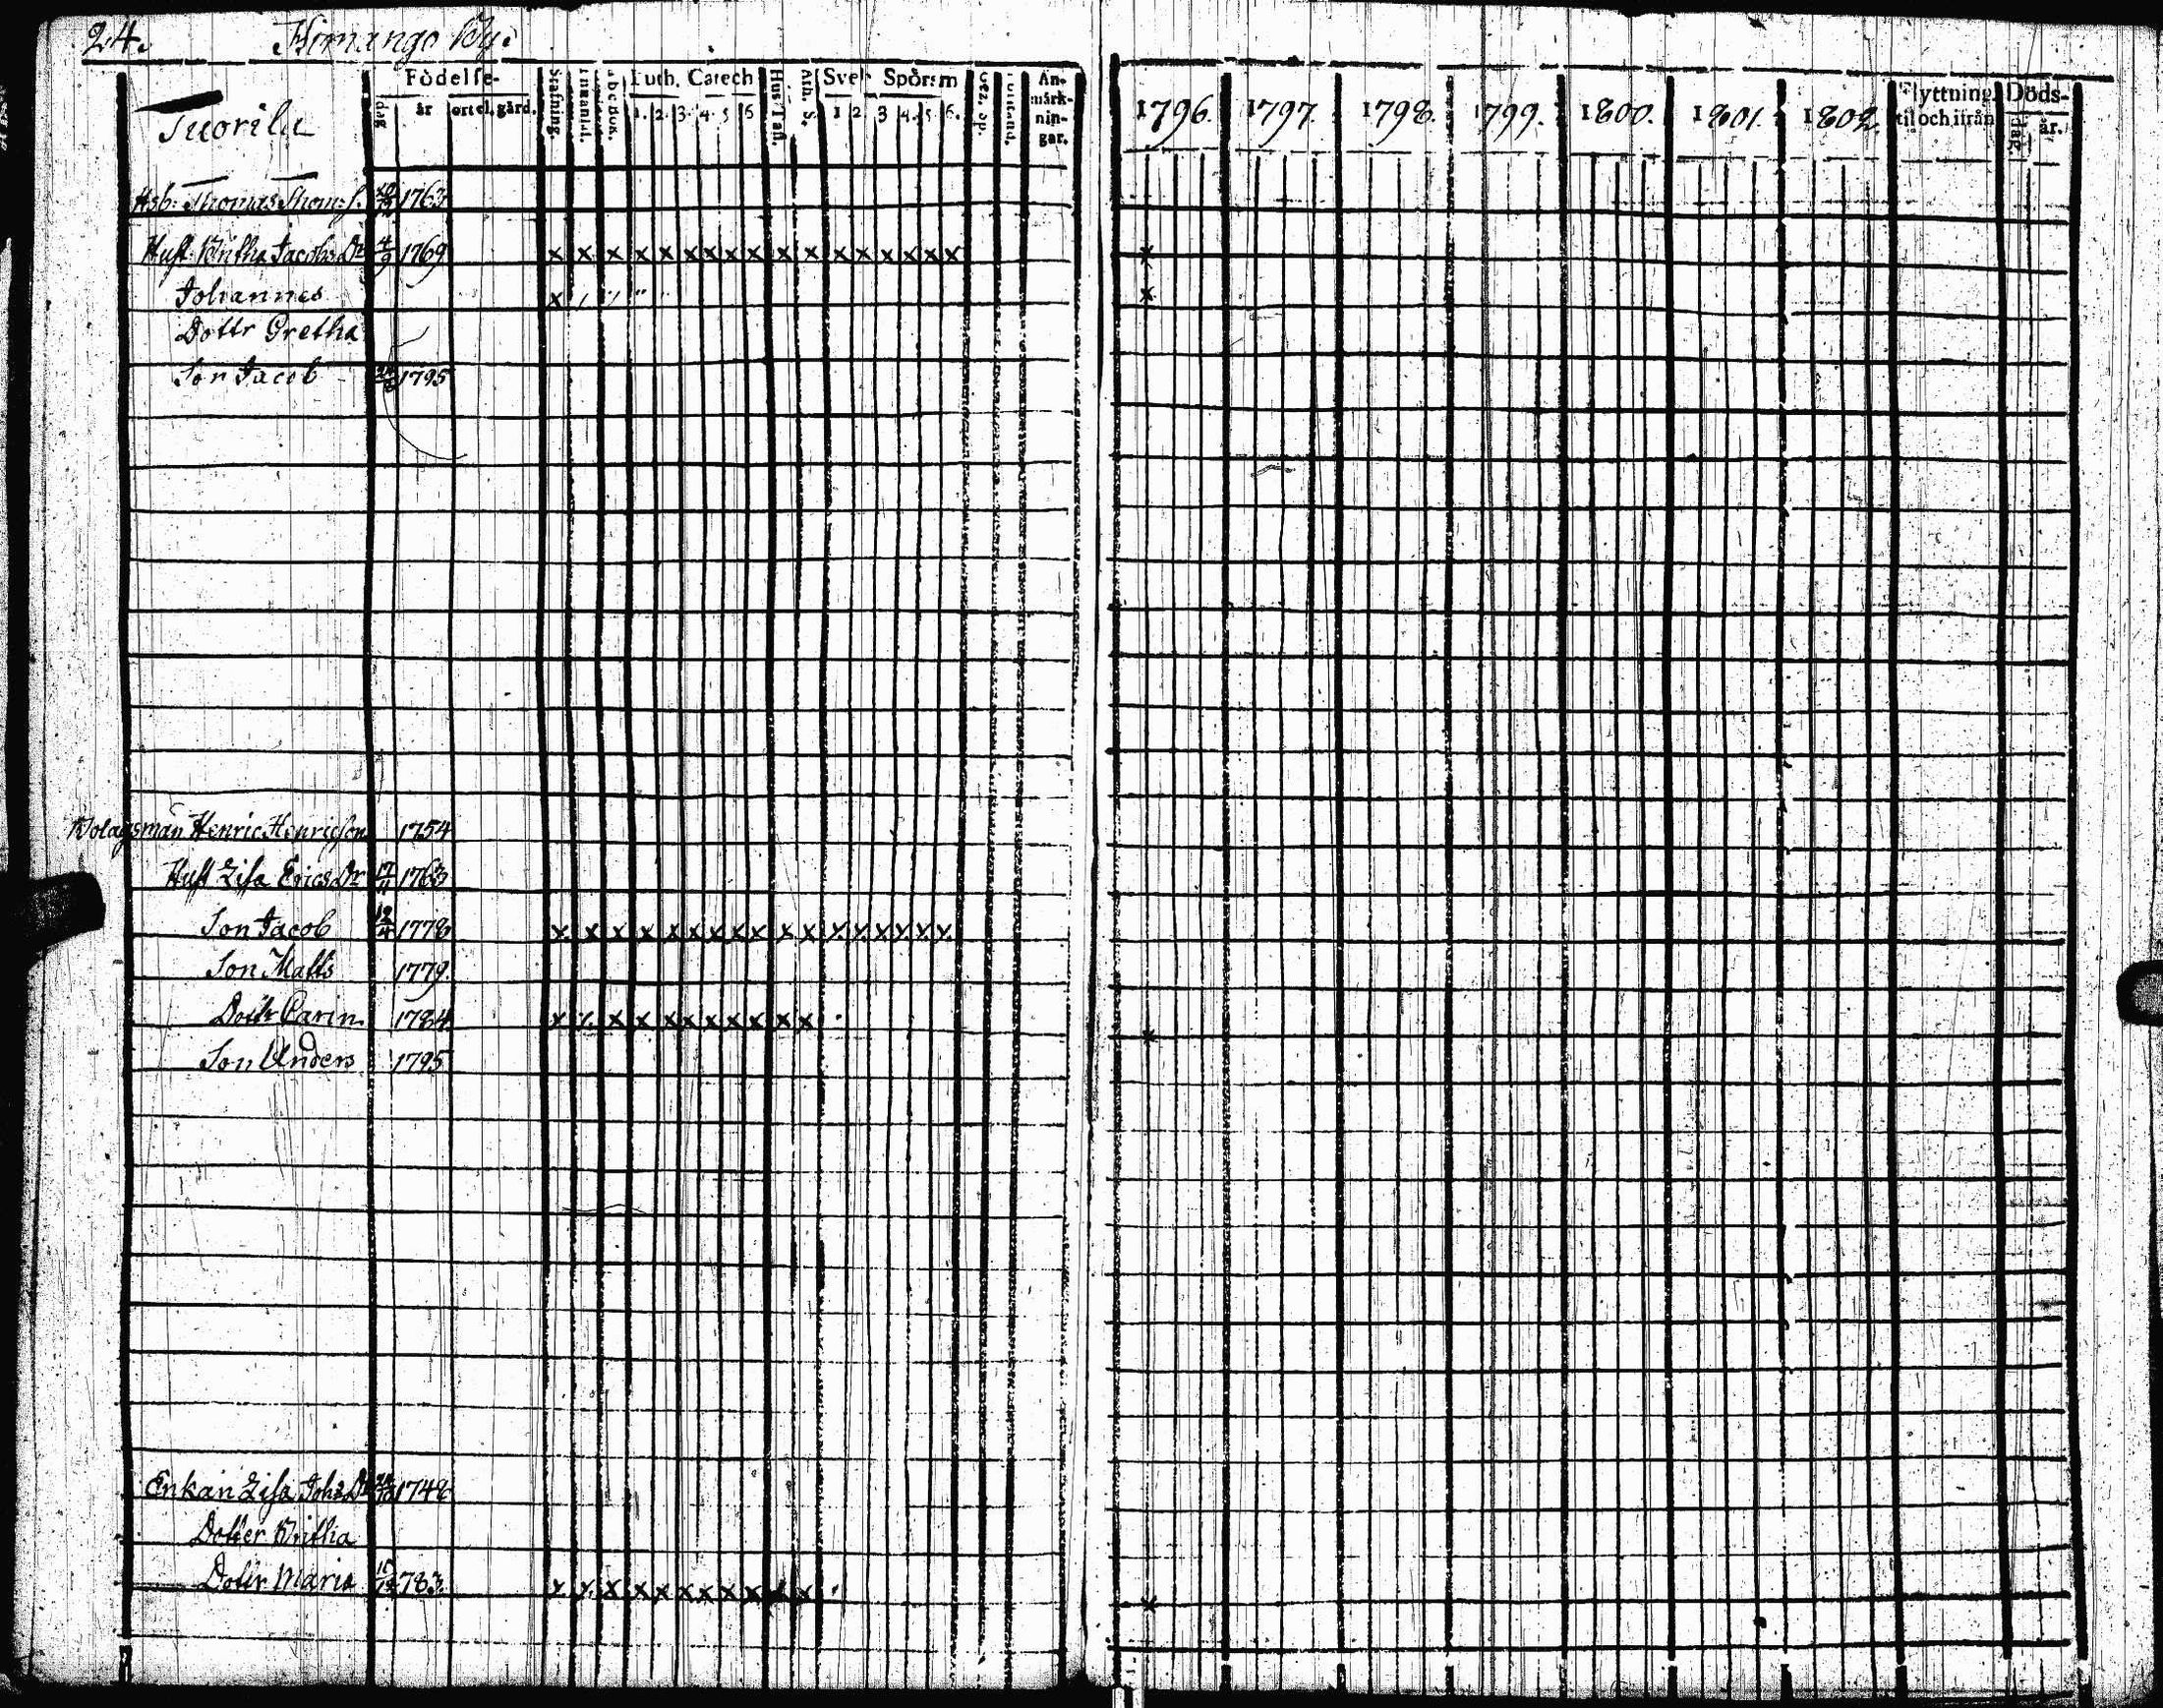 24. Himango By.
Födelse- Stafning. Luth. Catech Hus Tafl. Ath. S. Sve Spörsm An-märk-nin-gar.
dag år ort el. gård. 1. 2. 3. 4. 5 6 1 2 3 4. 5. 6.
1796. 1797. 1798. 1799. 1800. 1801. 1802. Flyttning. til och ifrån Döds- dag. år.
Tuorila
Hsb: Thomas Thoms S. 1763
Hust. Britha Jacobs Dr 4/9 1769 x x x x x x x x x x x x x x x x x x
Johannes x x
Dottr Gretha
Son Jacob 1795
Bolagsman Henric Henricsson 1754
Hust Lisa Erics Dr 17/11 1763
Son Jacob 12/4 1778 x x x x x x x x x x x x x x x x x
Son Matts 1779.
Dottr Carin 1784 x x x x x x x x x x x x
Son Anders 1795
Enkan Lisa Joh:s Dr 1748
Dotter Britha
Dottr Maria 1783. x x x x x x x x x x x x